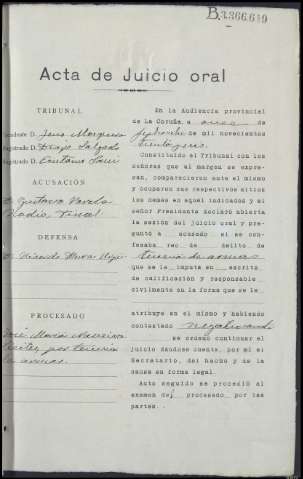 B.3.366.649
Acta de Juicio oral
TRIBUNAL
Presidente D. Jose Marquina
Magistrado D. Diego Salgado
Magistrado D.
ACUSACIÓN
D. Gustavo Varela
Radio Fiscal
DEFENSA
D. Ricardo
PROCESADO
José María
por tenencia
de armas.
En la Audiencia provincial
de La Coruña a once de
Septiembre de mil novecientos
treinta y seis
Constituido el Tribunal con los
señores que al margen se expre-
san, comparecieron ante el mismo
y ocuparon sus respectivos sitios
los demás en aquel indicados y el
señor Presidente declaró abierta
la sesión del juicio oral y pre-
guntó a acusado si se con-
fesaba reo de delito de
tenencia de armas
que se le imputa en escrito
de calificación y responsable
civilmente en la forma que se le
atribuye en el mismo y habiendo
contestado negativamente
se ordenó continuar el
juicio dándose cuenta, por mí el
Secretario, del hecho y de la
causa en forma legal.
Acto seguido se procedió al
examen del procesado por las
partes.